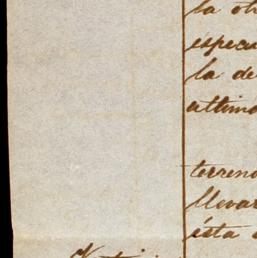 la ot
especu
la de
ultimo
terreno
llevar
ésta